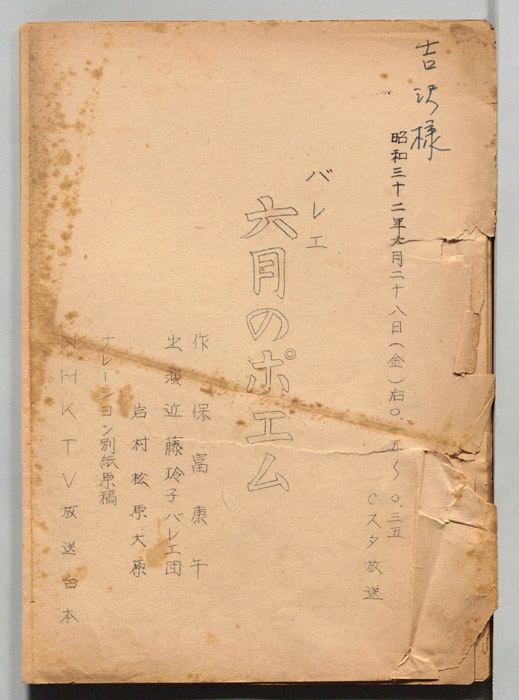 吉沢様
昭和三十二年六月二十八日(金)右〇.一五〜〇.三五
Cスタ放送
バレエ
六月のポエム
作 保富康午
出演 近藤玲子バレエ団
岩村 松原 大原
ナレーション別紙原稿
NHKTV放送台本